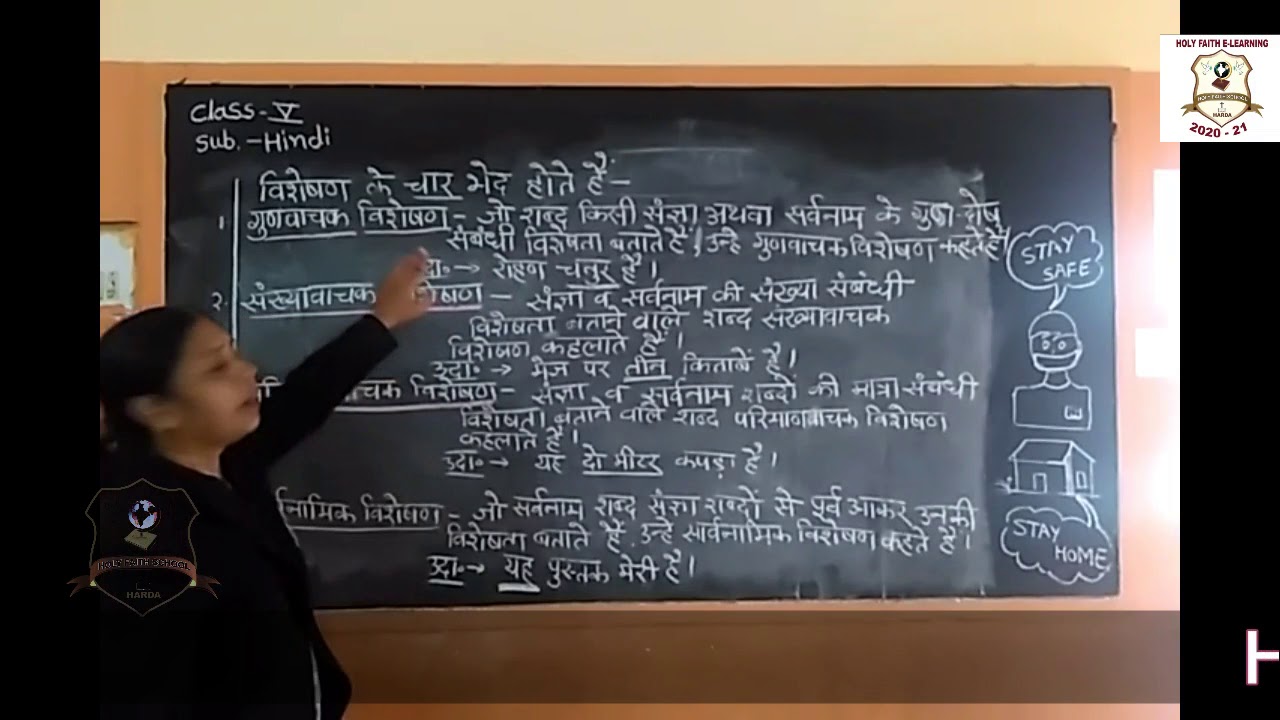 HOLY FAITH E-LEARNING
HOLY FAITH SCHOOL
HARDA
2020 - 21
Class - V
Sub. - Hindi
विशेषण के चार भेद होते हैं -
1. गुणवाचक विशेषण - जो शब्द किसी संज्ञा अथवा सर्वनाम के गुण-दोष
संबंधी विशेषता बताते हैं, उन्हे गुणवाचक विशेषण कहते हैं।
→ रोहण चतुर है।
2. संख्यावाचक विशेषण - संज्ञा व सर्वनाम की संख्या संबंधी
विशेषता बताने वाले शब्द संख्यावाचक
विशेषण कहलाते हैं।
उदा॰ → मेज पर तीन किताबें है।
वाचक विशेषण - संज्ञा व सर्वनाम शब्दों की मात्रा संबंधी
विशेषता बताने वाले शब्द परिमाणवाचक विशेषण
कहलाते हैं।
उदा॰ → यह दो मीटर कपड़ा है।
र्वनामिक विशेषण - जो सर्वनाम शब्द संज्ञा शब्दों से पूर्व आकर उनकी
विशेषता बताते हैं, उन्हे सार्वनामिक विशेषण कहते हैं।
उदा॰ → यह पुस्तक मेरी है।
STAY
SAFE
STAY
HOME
HOLY FAITH SCHOOL
HARDA
H